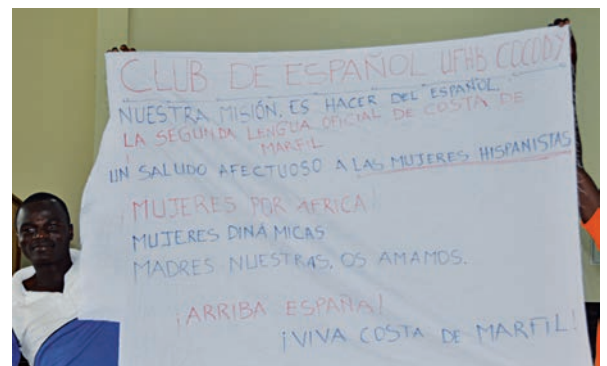 CLUB DE ESPAÑOL UFHB COCODY
NUESTRA MISIÓN, ES HACER DEL ESPAÑOL,
LA SEGUNDA LENGUA OFICIAL DE COSTA DE
MARFIL
UN SALUDO AFECTUOSO A LAS MUJERES HISPANISTAS
¡MUJERES POR AFRICA!
MUJERES DINÁMICAS
MADRES NUESTRAS, OS AMAMOS.
¡ARRIBA ESPAÑA!
¡VIVA COSTA DE MARFIL!